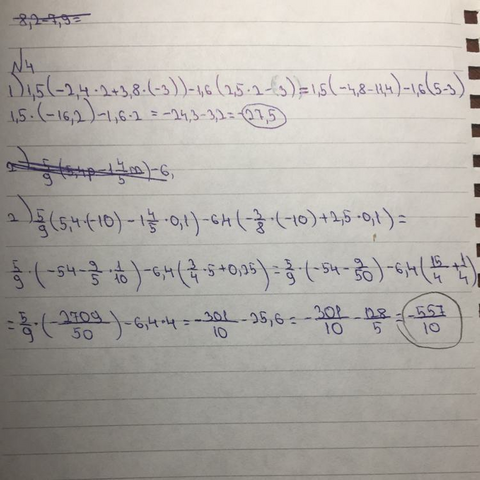 8,2-7,9=
№4
1) 1,5(-2,4·2+3,8·(-3))-1,6(2,5·2-3)=1,5(-4,8-11,4)-1,6(5-3)
1,5·(-16,2)-1,6·2=-24,3-3,2=-27,5
2) 5/9(5,4·(-10)-1 4/5·0,1)-6,4(-3/8·(-10)+2,5·0,1)=
5/9·(-54-9/5·1/10)-6,4(3/4·5+0,25)=5/9·(-54-9/50)-6,4(15/4+1/4)
=5/9·(-2709/50)-6,4·4=-301/10-25,6=-301/10-128/5=-557/10